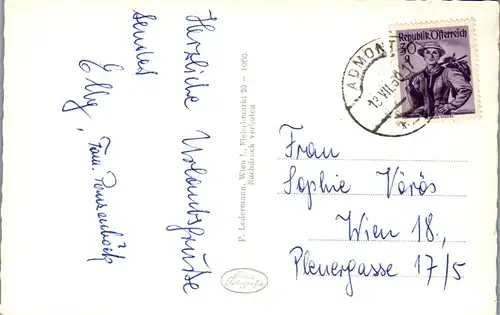 Herzliche Urlaubsgrüße
sendet
Elly,
Fam.
P. Ledermann, Wien I., Fleischmarkt 20 — 1600
Nachdruck verboten
Republik Österreich
30
g
ADMONT
13.VII.50
Frau
Sophie Vörös
Wien 18.,
Plenergasse 17/5